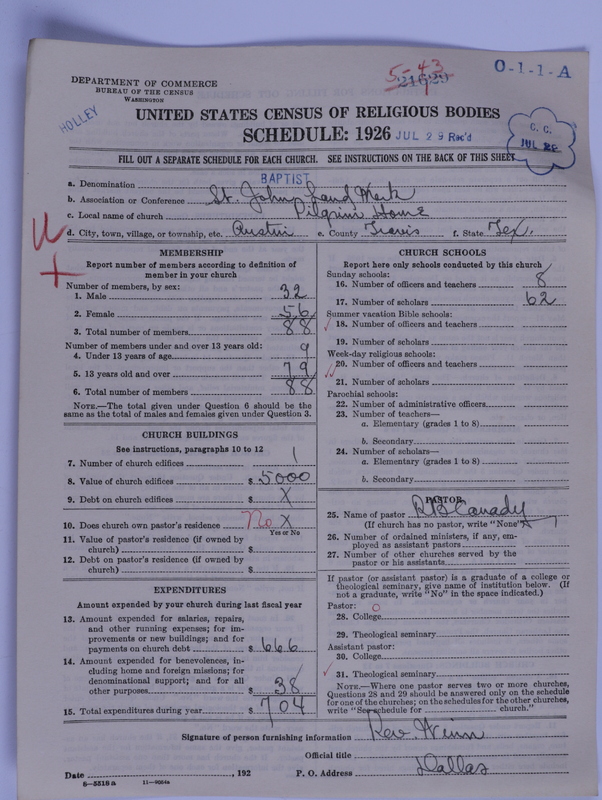 5-43
21629
O-1-1-A
DEPARTMENT OF COMMERCE
BUREAU OF THE CENSUS
WASHINGTON
HOLLEY
UNITED STATES CENSUS OF RELIGIOUS BODIES
SCHEDULE: 1926 JUL 29 Rec'd
C. C.
JUL 29
FILL OUT A SEPARATE SCHEDULE FOR EACH CHURCH. SEE INSTRUCTIONS ON THE BACK OF THIS SHEET
a. Denomination BAPTIST
b. Association or Conference St. John Land Mark
c. Local name of church Pilgrim Home
d. City, town, village, or township, etc. Austin e. County Travis f. State Tex.
MEMBERSHIP
Report number of members according to definition of member in your church
Number of members, by sex:
1. Male 32
2. Female 56
3. Total number of members 88
Number of members under and over 13 years old:
4. Under 13 years of age 9
5. 13 years old and over 79
6. Total number of members 88
NOTE.—The total given under Question 6 should be the
same as the total of males and females given under Question 3.
CHURCH BUILDINGS
See instructions, paragraphs 10 to 12
7. Number of church edifices 1
8. Value of church edifices $ 5000
9. Debt on church edifices $ X
10. Does church own pastor's residence No X
Yes or No
11. Value of pastor's residence (if owned by
church) $
12. Debt on pastor's residence (if owned by
church) $
EXPENDITURES
Amount expended by your church during last fiscal year
13. Amount expended for salaries, repairs,
and other running expenses; for im-
provements or new buildings; and for
payments on church debt $ 666
14. Amount expended for benevolences, in-
cluding home and foreign missions; for
denominational support; and for all
other purposes $ 38
15. Total expenditures during year $ 704
CHURCH SCHOOLS
Report here only schools conducted by this church
Sunday schools:
16. Number of officers and teachers 8
17. Number of scholars 62
Summer vacation Bible schools:
18. Number of officers and teachers
19. Number of scholars
Week-day religious schools:
20. Number of officers and teachers
21. Number of scholars
Parochial schools:
22. Number of administrative officers
23. Number of teachers—
a. Elementary (grades 1 to 8)
b. Secondary
24. Number of scholars—
a. Elementary (grades 1 to 8)
b. Secondary
PASTOR
25. Name of pastor R B Canady
(If church has no pastor, write "None")
26. Number of ordained ministers, if any, em-
ployed as assistant pastors
27. Number of other churches served by the
pastor or his assistants
If pastor (or assistant pastor) is a graduate of a college or
theological seminary, give name of institution below. (If
not a graduate, write "No" in the space indicated.)
Pastor:
28. College
29. Theological seminary
Assistant pastor:
30. College
31. Theological seminary
NOTE.—Where one pastor serves two or more churches,
Questions 28 and 29 should be answered only on the schedule
for one of the churches; on the schedules for the other churches,
write "See schedule for church."
Signature of person furnishing information Rev. Winn
Official title
Date , 192 P. O. Address Dallas
8-5518a 11-9034a